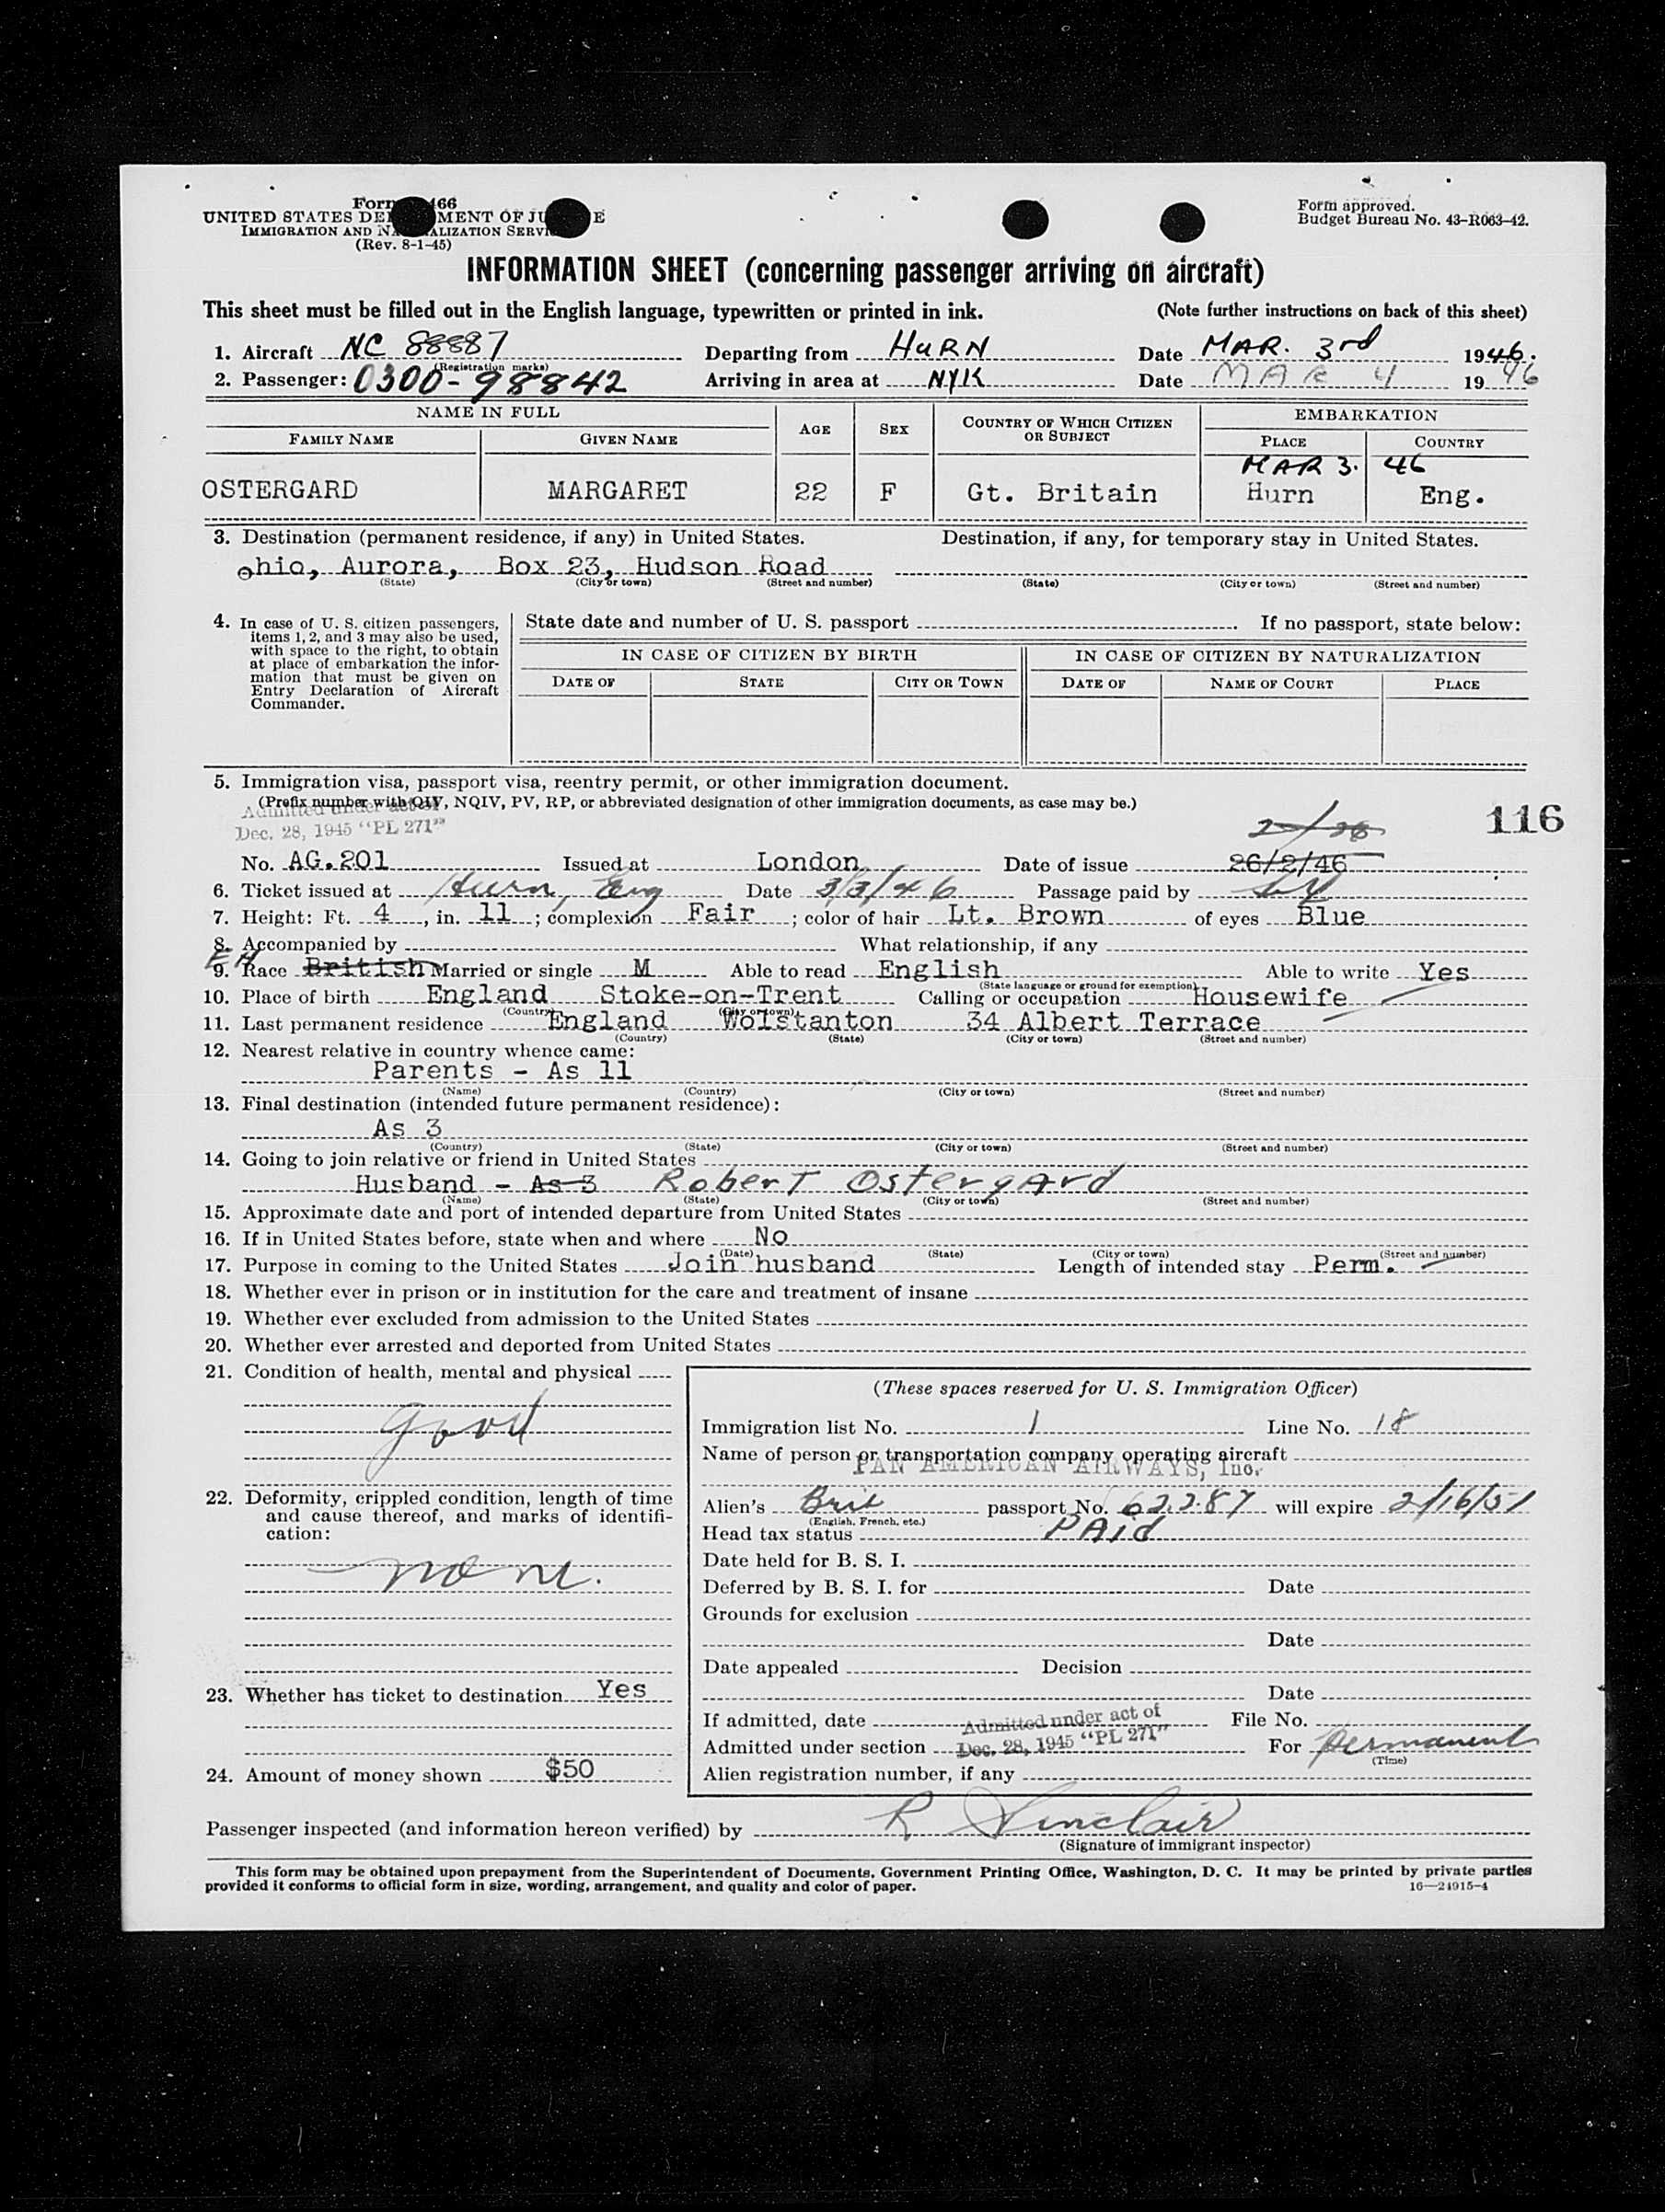 Form 466
UNITED STATES DEPARTMENT OF JUSTICE
IMMIGRATION AND NATURALIZATION SERVICE
(Rev. 8-1-45)
Form approved.
Budget Bureau No. 43-R063-42.
INFORMATION SHEET (concerning passenger arriving on aircraft)
This sheet must be filled out in the English language, typewritten or printed in ink. (Note further instructions on back of this sheet)
1. Aircraft NC 88887 Departing from HURN Date MAR. 3rd 1946.
(Registration marks)
2. Passenger: 0300-98842 Arriving in area at NYK Date MAR 4 19 46
NAME IN FULL AGE SEX COUNTRY OF WHICH CITIZEN OR SUBJECT EMBARKATION
FAMILY NAME GIVEN NAME PLACE COUNTRY
MAR 3. 46
OSTERGARD MARGARET 22 F Gt. Britain Hurn Eng.
3. Destination (permanent residence, if any) in United States. Destination, if any, for temporary stay in United States.
Ohio, Aurora, Box 23, Hudson Road
(State) (City or town) (Street and number) (State) (City or town) (Street and number)
4. In case of U. S. citizen passengers, items 1, 2, and 3 may also be used, with space to the right, to obtain at place of embarkation the information that must be given on Entry Declaration of Aircraft Commander.
State date and number of U. S. passport If no passport, state below:
IN CASE OF CITIZEN BY BIRTH IN CASE OF CITIZEN BY NATURALIZATION
DATE OF STATE CITY OR TOWN DATE OF NAME OF COURT PLACE
5. Immigration visa, passport visa, reentry permit, or other immigration document.
(Prefix number with QIV, NQIV, PV, RP, or abbreviated designation of other immigration documents, as case may be.)
Admitted under act of
Dec. 28, 1945 "PL 271"
116
No. AG.201 Issued at London Date of issue 26/2/46
6. Ticket issued at Hurn, Eng Date 3/3/46 Passage paid by
7. Height: Ft. 4, in. 11; complexion Fair; color of hair Lt. Brown of eyes Blue
8. Accompanied by What relationship, if any
9. Race British Married or single M Able to read English Able to write Yes
(State language or ground for exemption)
10. Place of birth England Stoke-on-Trent Calling or occupation Housewife
(Country) (City or town)
11. Last permanent residence England Wolstanton 34 Albert Terrace
(Country) (State) (City or town) (Street and number)
12. Nearest relative in country whence came:
Parents - As 11
(Name) (Country) (City or town) (Street and number)
13. Final destination (intended future permanent residence):
As 3
(Country) (State) (City or town) (Street and number)
14. Going to join relative or friend in United States
Husband - As 3 Robert Ostergard
(Name) (State) (City or town) (Street and number)
15. Approximate date and port of intended departure from United States
16. If in United States before, state when and where No
(Date) (State) (City or town) (Street and number)
17. Purpose in coming to the United States Join husband Length of intended stay Perm.
18. Whether ever in prison or in institution for the care and treatment of insane
19. Whether ever excluded from admission to the United States
20. Whether ever arrested and deported from United States
21. Condition of health, mental and physical
good
22. Deformity, crippled condition, length of time and cause thereof, and marks of identification:
none.
23. Whether has ticket to destination Yes
24. Amount of money shown $50
(These spaces reserved for U. S. Immigration Officer)
Immigration list No. 1 Line No. 18
Name of person or transportation company operating aircraft
PAN AMERICAN AIRWAYS, Inc.
Alien's Brit passport No. 62287 will expire 2/16/51
(English, French, etc.)
Head tax status PAId
Date held for B. S. I.
Deferred by B. S. I. for Date
Grounds for exclusion
Date
Date appealed Decision
Date
If admitted, date File No.
Admitted under act of
Admitted under section Dec. 28, 1945 "PL 271" For Permanent
(Time)
Alien registration number, if any
Passenger inspected (and information hereon verified) by R Sinclair
(Signature of immigrant inspector)
This form may be obtained upon prepayment from the Superintendent of Documents, Government Printing Office, Washington, D. C. It may be printed by private parties
provided it conforms to official form in size, wording, arrangement, and quality and color of paper. 16—24915-4